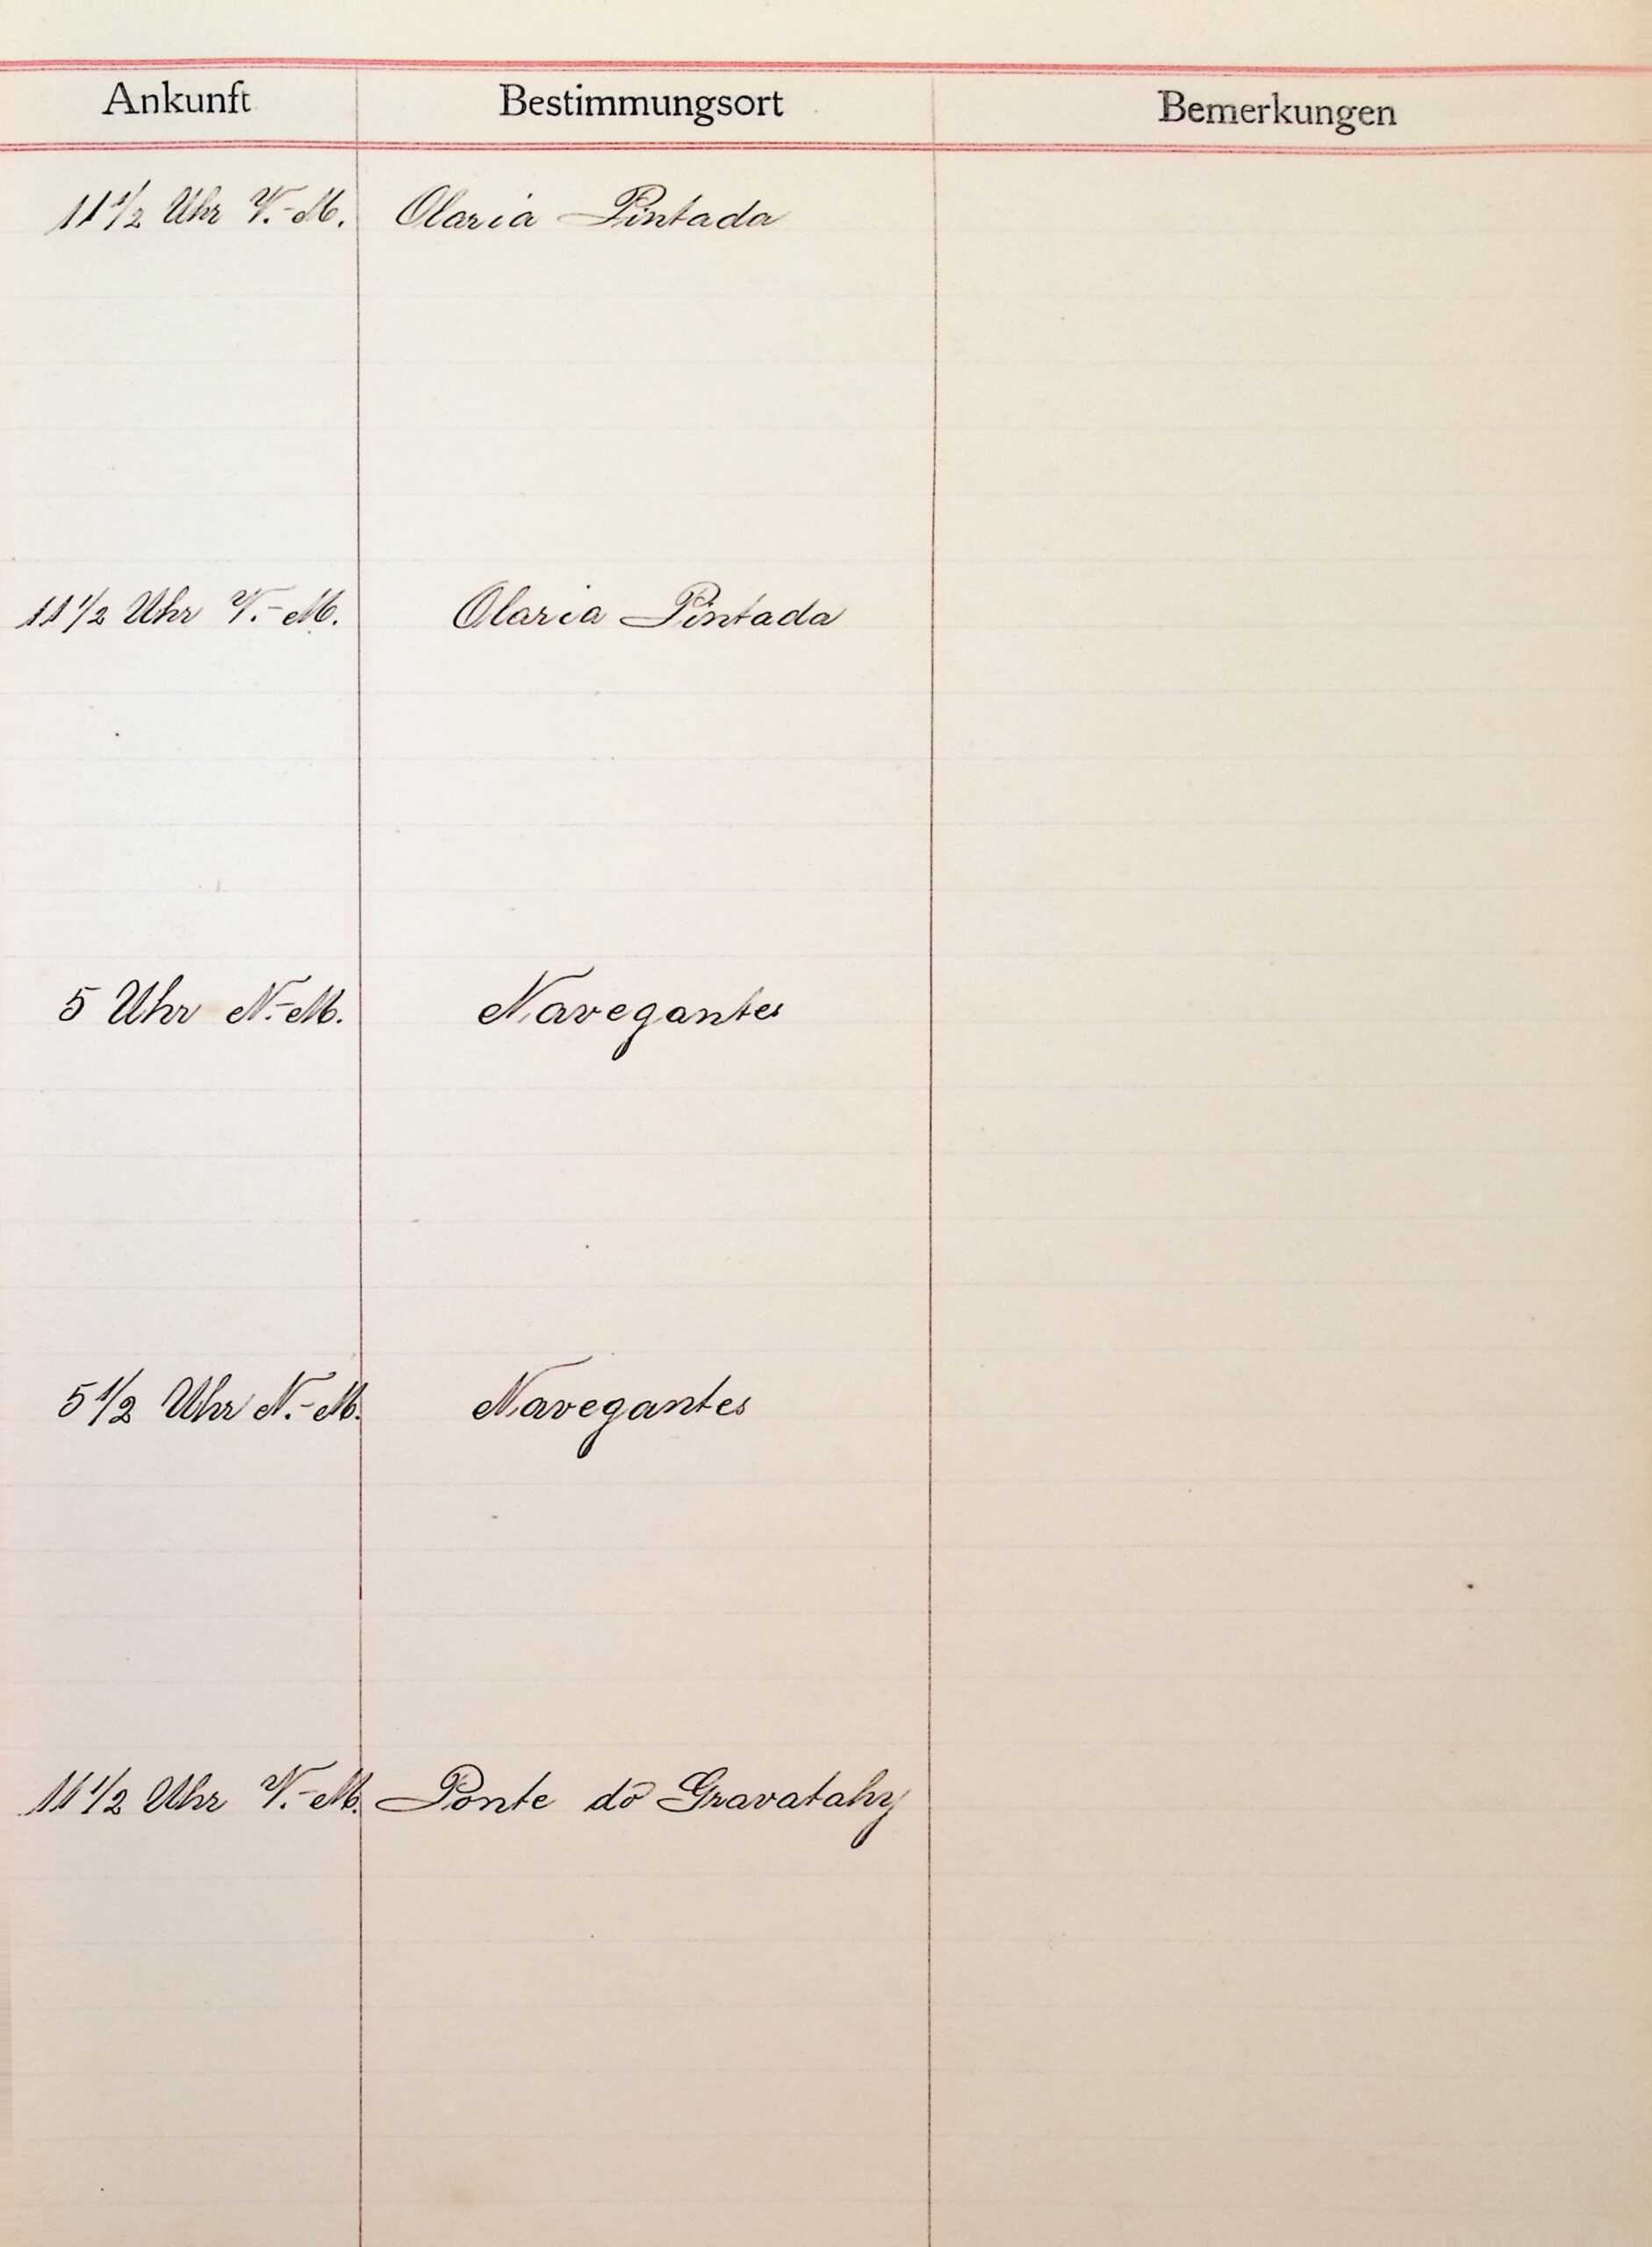 Ankunft Bestimmungsort Bemerkungen
11 1/2 Uhr V.-M. Olaria Pintada
11 1/2 Uhr V.-M. Olaria Pintada
5 Uhr N.-M. Navegantes
5 1/2 Uhr N.-M. Navegantes
11 1/2 Uhr V.-M. Ponte do Gravatahy